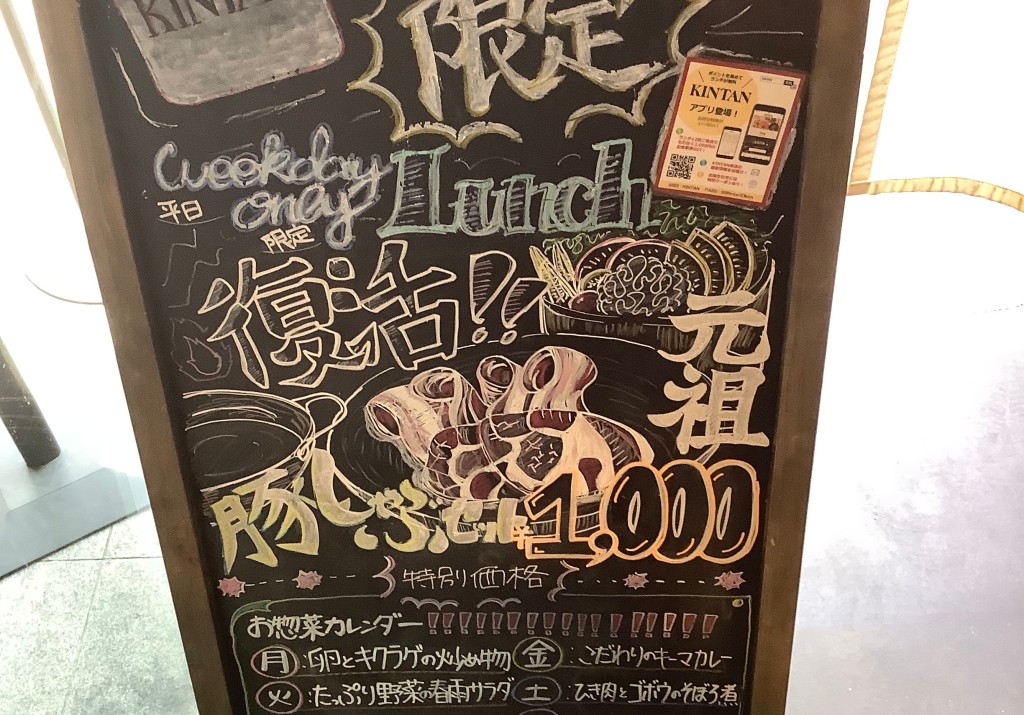 KINTAN
限定
ポイントを集めて
ランチが無料
KINTAN
アプリ登場！
Weekday
only
Lunch
平日
限定
復活!!
元祖
豚しゃぶ
¥1,000
特別価格
お惣菜カレンダー
月:卵とキクラゲの炒め物
金:こだわりのキーマカレー
火:たっぷり野菜の春雨サラダ
土:ひき肉とゴボウのそぼろ煮